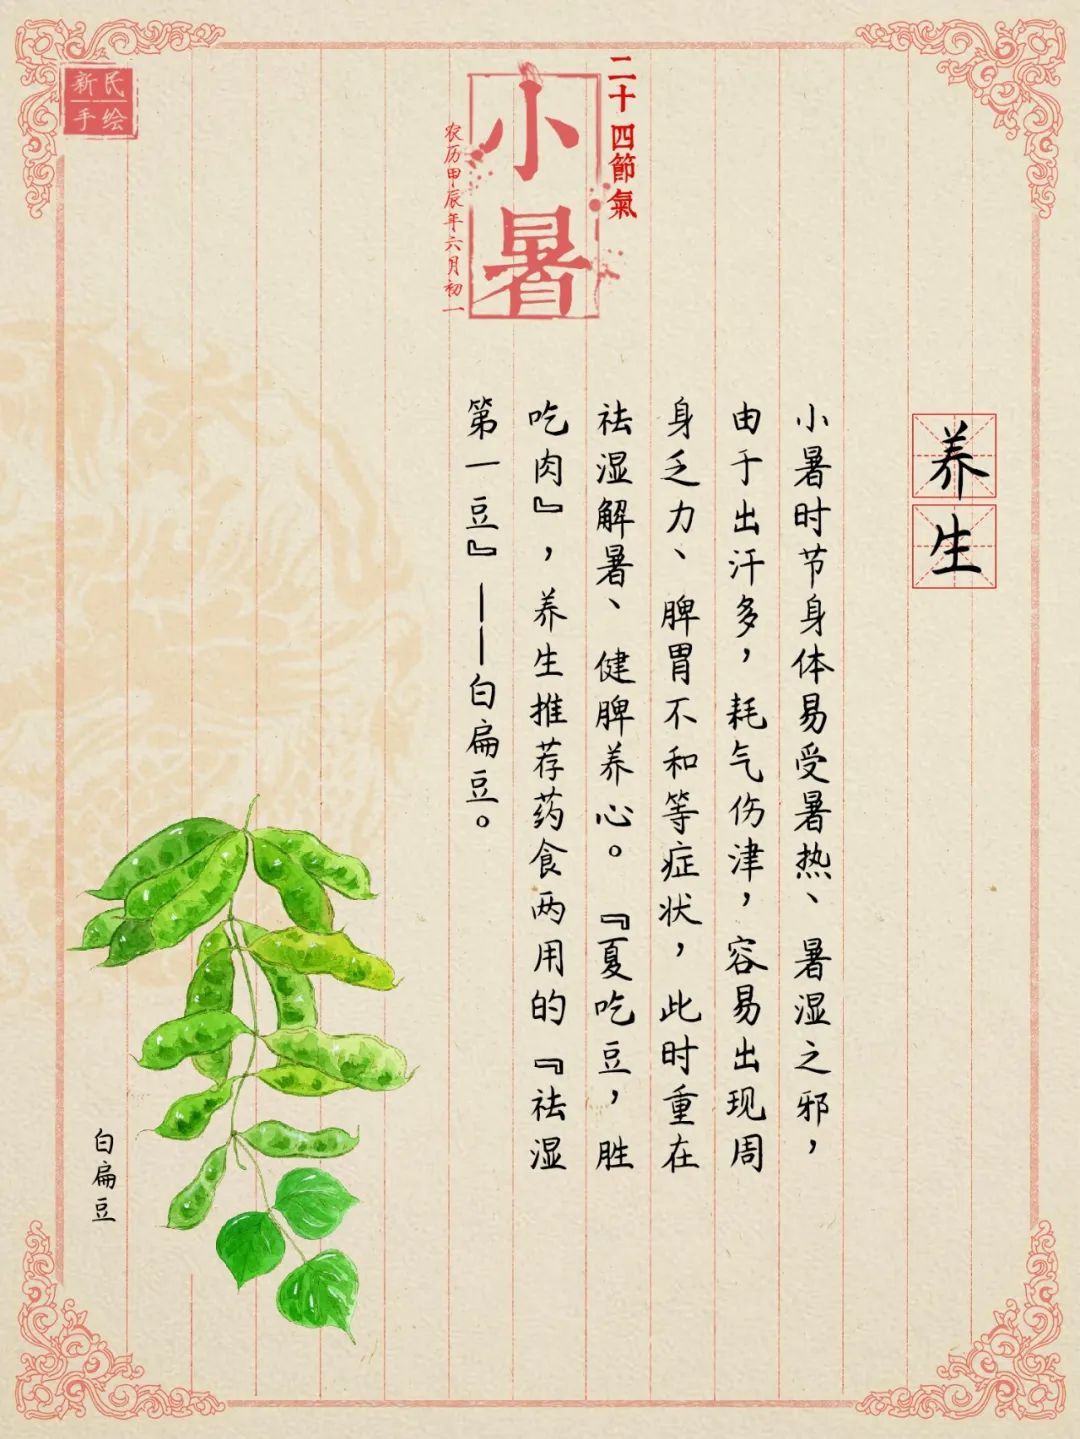 新民
手绘
二十四節氣
小暑
农历甲辰年六月初一
养生
小暑时节身体易受暑热、暑湿之邪，
由于出汗多，耗气伤津，容易出现周
身乏力、脾胃不和等症状，此时重在
祛湿解暑、健脾养心。『夏吃豆，胜
吃肉』，养生推荐药食两用的『祛湿
第一豆』——白扁豆。
白扁豆